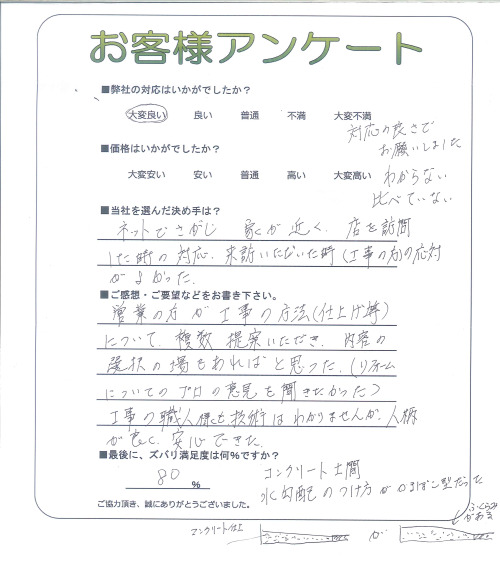 お客様アンケート
■弊社の対応はいかがでしたか？
大変良い　良い　普通　不満　大変不満
対応の良さで
お願いしました
■価格はいかがでしたか？
大変安い　安い　普通　高い　大変高い
わからない
比べていない
■当社を選んだ決め手は？
ネットでさがし 家が近く、店を訪問
した時の対応、来訪いただいた時(工事の方)の応対
がよかった。
■ご感想・ご要望などをお書き下さい。
営業の方が工事の方法(仕上げ等)
について、複数提案いただき、内容の
選択の場もあればと思った。(リフォーム
についてのプロの意見を聞きたかった)
工事の職人様も技術はわかりませんが、人柄
が良く、安心できた。
■最後に、ズバリ満足度は何％ですか？
80 ％
コンクリート土間
水勾配のつけ方がかまぼこ型だった
ご協力頂き、誠にありがとうございました。
ふくらみ
がある
コンクリート仕上
が